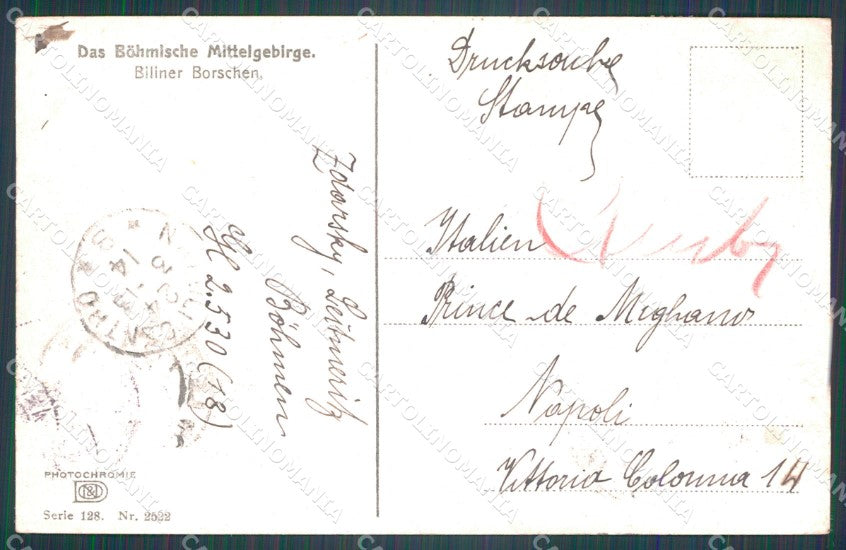 Das Böhmische Mittelgebirge.
Biliner Borschen.
Drucksache
Stampe
Zdarsky, Leitmeritz
Böhmen
2.530 (18)
Italien
Prince de Meghano
Napoli
Vittoria Colonna 14
PHOTOCHROMIE
Serie 128. Nr. 2522
CARTOLINOMANIA